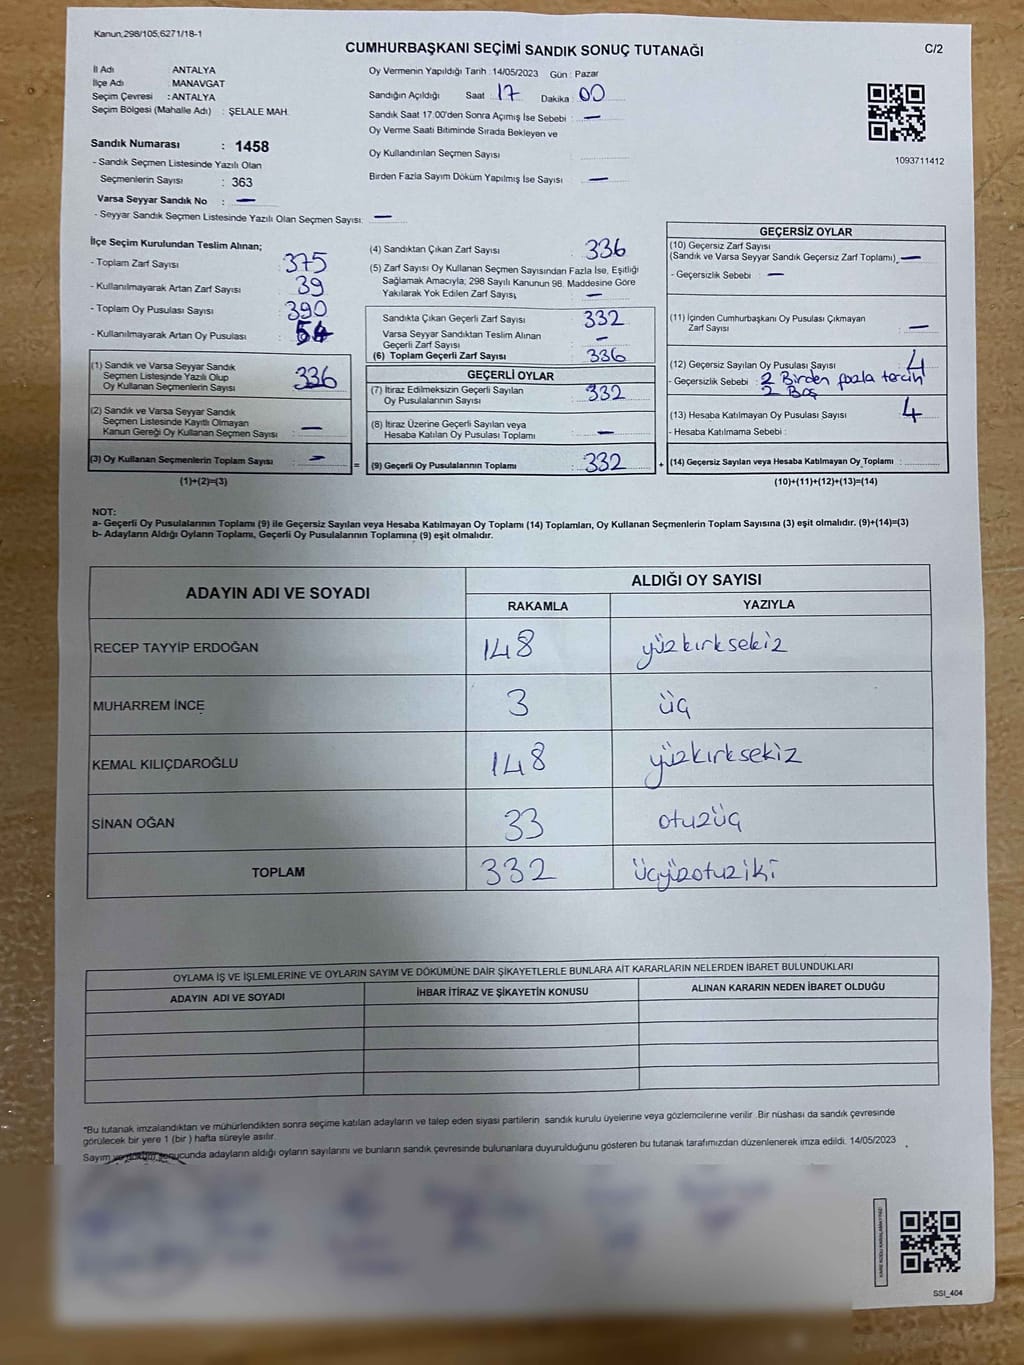 Kanun,298/105,6271/18-1
CUMHURBAŞKANI SEÇİMİ SANDIK SONUÇ TUTANAĞI
C/2
İl Adı : ANTALYA
İlçe Adı : MANAVGAT
Seçim Çevresi : ANTALYA
Seçim Bölgesi (Mahalle Adı) : ŞELALE MAH.
Sandık Numarası : 1458
- Sandık Seçmen Listesinde Yazılı Olan
Seçmenlerin Sayısı : 363
Varsa Seyyar Sandık No : —
- Seyyar Sandık Seçmen Listesinde Yazılı Olan Seçmen Sayısı: —
Oy Vermenin Yapıldığı Tarih : 14/05/2023 Gün : Pazar
Sandığın Açıldığı Saat : 17 Dakika : 00
Sandık Saat 17.00'den Sonra Açımış İse Sebebi : —
Oy Verme Saati Bitiminde Sırada Bekleyen ve
Oy Kullandırılan Seçmen Sayısı :
Birden Fazla Sayım Döküm Yapılmış İse Sayısı : —
1093711412
İlçe Seçim Kurulundan Teslim Alınan;
- Toplam Zarf Sayısı : 375
- Kullanılmayarak Artan Zarf Sayısı : 39
- Toplam Oy Pusulası Sayısı : 390
- Kullanılmayarak Artan Oy Pusulası : 54
(1) Sandık ve Varsa Seyyar Sandık
Seçmen Listesinde Yazılı Olup
Oy Kullanan Seçmenlerin Sayısı : 336
(2) Sandık ve Varsa Seyyar Sandık
Seçmen Listesinde Kayıtlı Olmayan
Kanun Gereği Oy Kullanan Seçmen Sayısı : —
(3) Oy Kullanan Seçmenlerin Toplam Sayısı : — =
(1)+(2)=(3)
(4) Sandıktan Çıkan Zarf Sayısı : 336
(5) Zarf Sayısı Oy Kullanan Seçmen Sayısından Fazla İse, Eşitliği
Sağlamak Amacıyla; 298 Sayılı Kanunun 98. Maddesine Göre
Yakılarak Yok Edilen Zarf Sayısı; —
Sandıkta Çıkan Geçerli Zarf Sayısı : 332
Varsa Seyyar Sandıktan Teslim Alınan
Geçerli Zarf Sayısı : —
(6) Toplam Geçerli Zarf Sayısı : 336
GEÇERLİ OYLAR
(7) İtiraz Edilmeksizin Geçerli Sayılan
Oy Pusulalarının Sayısı : 332
(8) İtiraz Üzerine Geçerli Sayılan veya
Hesaba Katılan Oy Pusulası Toplamı : —
(9) Geçerli Oy Pusulalarının Toplamı : 332 +
GEÇERSİZ OYLAR
(10) Geçersiz Zarf Sayısı
(Sandık ve Varsa Seyyar Sandık Geçersiz Zarf Toplamı) : —
- Geçersizlik Sebebi : —
(11) İçinden Cumhurbaşkanı Oy Pusulası Çıkmayan
Zarf Sayısı : —
(12) Geçersiz Sayılan Oy Pusulası Sayısı : 4
- Geçersizlik Sebebi : 2 Birden fazla tercih
2 Boş
(13) Hesaba Katılmayan Oy Pusulası Sayısı : 4
- Hesaba Katılmama Sebebi :
(14) Geçersiz Sayılan veya Hesaba Katılmayan Oy Toplamı :
(10)+(11)+(12)+(13)=(14)
NOT:
a- Geçerli Oy Pusulalarının Toplamı (9) ile Geçersiz Sayılan veya Hesaba Katılmayan Oy Toplamı (14) Toplamları, Oy Kullanan Seçmenlerin Toplam Sayısına (3) eşit olmalıdır. (9)+(14)=(3)
b- Adayların Aldığı Oyların Toplamı, Geçerli Oy Pusulalarının Toplamına (9) eşit olmalıdır.
ADAYIN ADI VE SOYADI ALDIĞI OY SAYISI
RAKAMLA YAZIYLA
RECEP TAYYİP ERDOĞAN 148 yüzkırksekiz
MUHARREM İNCE 3 üç
KEMAL KILIÇDAROĞLU 148 yüzkırksekiz
SİNAN OĞAN 33 otuzüç
TOPLAM 332 üçyüzotuziki
OYLAMA İŞ VE İŞLEMLERİNE VE OYLARIN SAYIM VE DÖKÜMÜNE DAİR ŞİKAYETLERLE BUNLARA AİT KARARLARIN NELERDEN İBARET BULUNDUKLARI
ADAYIN ADI VE SOYADI İHBAR İTİRAZ VE ŞİKAYETİN KONUSU ALINAN KARARIN NEDEN İBARET OLDUĞU
*Bu tutanak imzalandıktan ve mühürlendikten sonra seçime katılan adayların ve talep eden siyasi partilerin sandık kurulu üyelerine veya gözlemcilerine verilir. Bir nüshası da sandık çevresinde
görülecek bir yere 1 (bir ) hafta süreyle asılır.
Sayım ve döküm sonucunda adayların aldığı oyların sayılarını ve bunların sandık çevresinde bulunanlara duyurulduğunu gösteren bu tutanak tarafımızdan düzenlenerek imza edildi. 14/05/2023
SSI_404